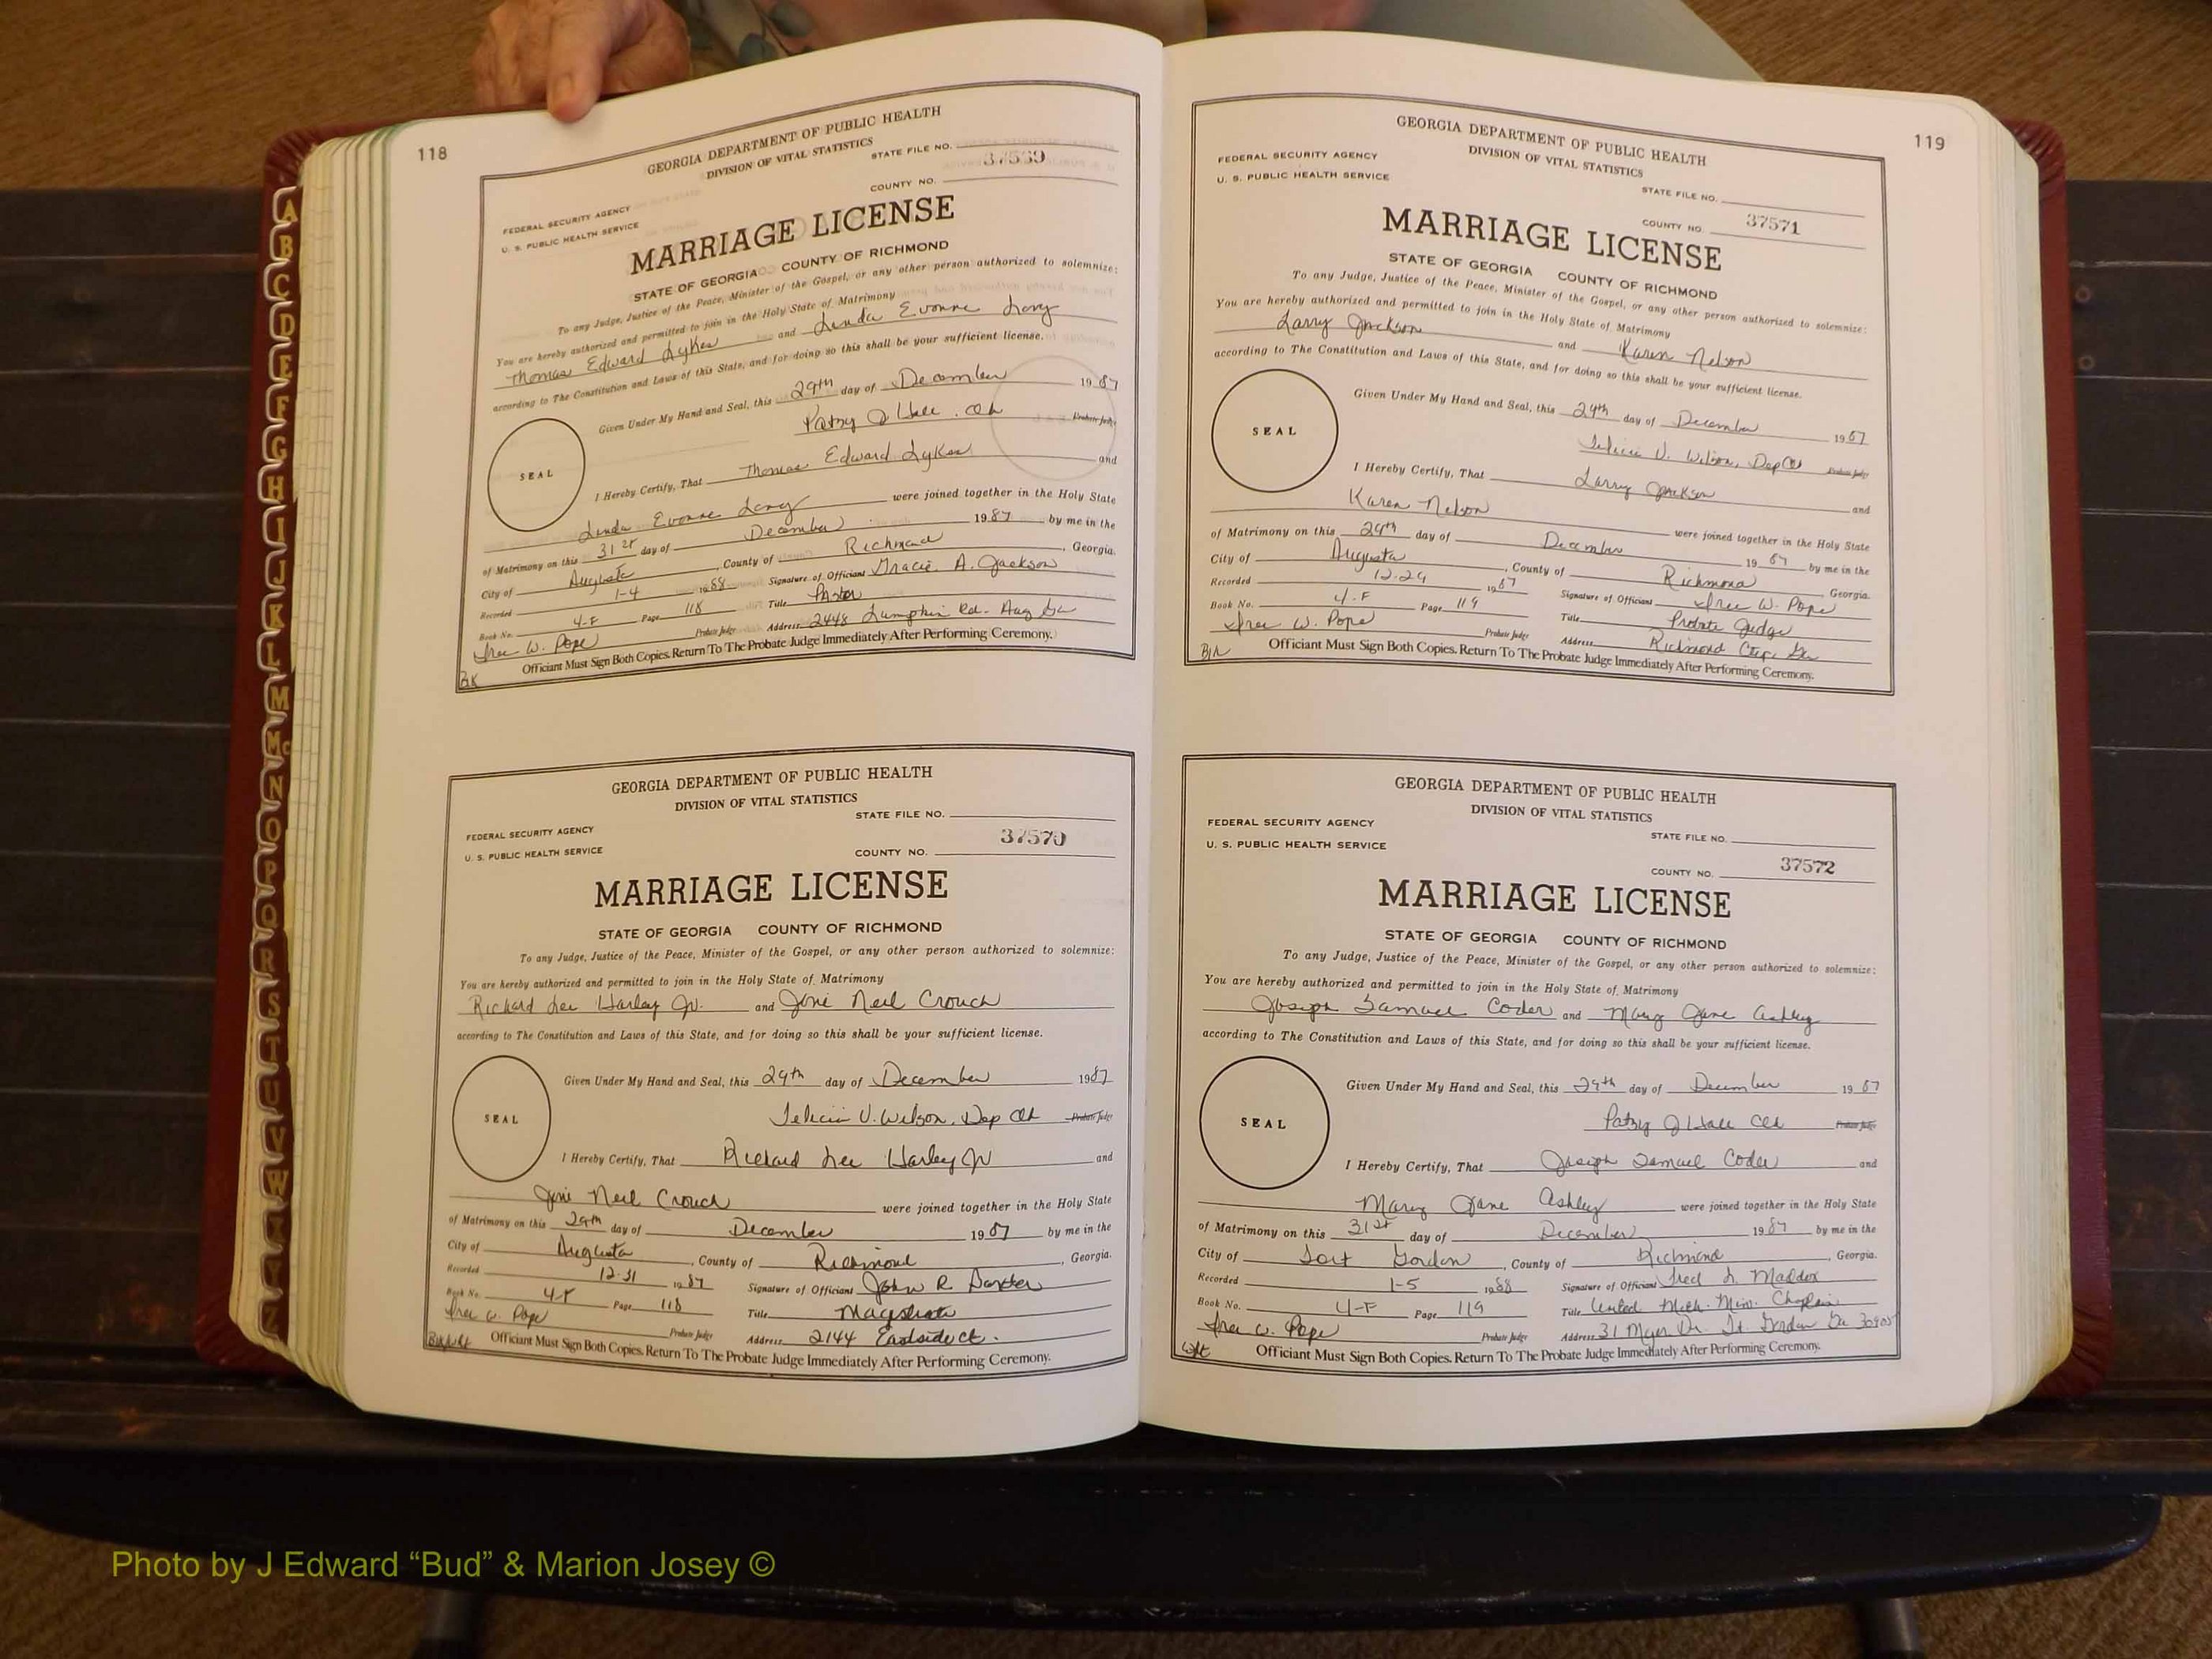 118
GEORGIA DEPARTMENT OF PUBLIC HEALTH
DIVISION OF VITAL STATISTICS
STATE FILE NO.
37569
COUNTY NO.
FEDERAL SECURITY AGENCY
U. S. PUBLIC HEALTH SERVICE
MARRIAGE LICENSE
STATE OF GEORGIA COUNTY OF RICHMOND
To any Judge, Justice of the Peace, Minister of the Gospel, or any other person authorized to solemnize:
You are hereby authorized and permitted to join in the Holy State of Matrimony
Thomas Edward Lykes and Linda Evonne Long
according to The Constitution and Laws of this State, and for doing so this shall be your sufficient license.
Given Under My Hand and Seal, this 29th day of December 1987
Patsy J Hall. Clk Probate Judge
SEAL
I Hereby Certify, That Thomas Edward Lykes and
Linda Evonne Long were joined together in the Holy State
of Matrimony on this 31st day of December 1987 by me in the
City of Augusta, County of Richmond, Georgia.
Recorded 1-4 1988 Signature of Officiant Gracie A. Jackson
Book No. 4-F Page 118 Title Pastor
W. Pope Probate Judge Address 2448 Lumpkin Rd. Aug Ga
Officiant Must Sign Both Copies. Return To The Probate Judge Immediately After Performing Ceremony.
GEORGIA DEPARTMENT OF PUBLIC HEALTH
DIVISION OF VITAL STATISTICS
STATE FILE NO.
FEDERAL SECURITY AGENCY
37570
U. S. PUBLIC HEALTH SERVICE
COUNTY NO.
MARRIAGE LICENSE
STATE OF GEORGIA COUNTY OF RICHMOND
To any Judge, Justice of the Peace, Minister of the Gospel, or any other person authorized to solemnize:
You are hereby authorized and permitted to join in the Holy State of Matrimony
Richard Lee Harley Jr. and Joni Neil Crouch
according to The Constitution and Laws of this State, and for doing so this shall be your sufficient license.
Given Under My Hand and Seal, this 29th day of December 1987
Felicia V. Wilson, Dep Clk Probate Judge
SEAL
I Hereby Certify, That Richard Lee Harley Jr and
Joni Neil Crouch were joined together in the Holy State
of Matrimony on this 29th day of December 1987 by me in the
City of Augusta, County of Richmond, Georgia.
Recorded 12-31 1987 Signature of Officiant John R. Baxter
Book No. 4-F Page 118 Title Magistrate
W. Pope Probate Judge Address 2144 Eastside Ct.
Officiant Must Sign Both Copies. Return To The Probate Judge Immediately After Performing Ceremony.
119
GEORGIA DEPARTMENT OF PUBLIC HEALTH
DIVISION OF VITAL STATISTICS
FEDERAL SECURITY AGENCY
U. S. PUBLIC HEALTH SERVICE
STATE FILE NO.
COUNTY NO. 37571
MARRIAGE LICENSE
STATE OF GEORGIA COUNTY OF RICHMOND
To any Judge, Justice of the Peace, Minister of the Gospel, or any other person authorized to solemnize:
You are hereby authorized and permitted to join in the Holy State of Matrimony
Larry Jackson and Karen Nelson
according to The Constitution and Laws of this State, and for doing so this shall be your sufficient license.
Given Under My Hand and Seal, this 29th day of December 1987
Felicia V. Wilson, Dep Clk Probate Judge
SEAL
I Hereby Certify, That Larry Jackson and
Karen Nelson were joined together in the Holy State
of Matrimony on this 29th day of December 1987 by me in the
City of Augusta, County of Richmond Georgia.
Recorded 12-29 1987 Signature of Officiant W. Pope
Book No. 4-F Page 119 Title Probate Judge
W. Pope Probate Judge Address Richmond Cty. Ga
Officiant Must Sign Both Copies. Return To The Probate Judge Immediately After Performing Ceremony.
GEORGIA DEPARTMENT OF PUBLIC HEALTH
DIVISION OF VITAL STATISTICS
FEDERAL SECURITY AGENCY
STATE FILE NO.
U. S. PUBLIC HEALTH SERVICE
COUNTY NO. 37572
MARRIAGE LICENSE
STATE OF GEORGIA COUNTY OF RICHMOND
To any Judge, Justice of the Peace, Minister of the Gospel, or any other person authorized to solemnize:
You are hereby authorized and permitted to join in the Holy State of Matrimony
Joseph Samuel Coder and Mary Jane Ashley
according to The Constitution and Laws of this State, and for doing so this shall be your sufficient license.
Given Under My Hand and Seal, this 29th day of December 1987
Patsy J Hall Clk Probate Judge
SEAL
I Hereby Certify, That Joseph Samuel Coder and
Mary Jane Ashley were joined together in the Holy State
of Matrimony on this 31st day of December 1987 by me in the
City of Fort Gordon, County of Richmond, Georgia.
Recorded 1-5 1988 Signature of Officiant Fred L. Maddox
Book No. 4-F Page 119 Title United Meth. Min. Chaplain
W. Pope Probate Judge Address 31 Myer Dr Ft. Gordon Ga 30905
Officiant Must Sign Both Copies. Return To The Probate Judge Immediately After Performing Ceremony.
A
B
C
D
E
F
G
H
I
J
K
L
M
Mc
N
O
P
Q
R
S
T
U
V
W
X
Y
Z
Photo by J Edward “Bud” & Marion Josey ©